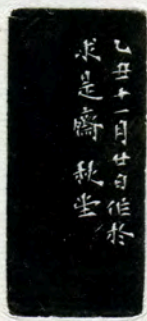 乙丑十一月廿日作於
求是齋 秋堂